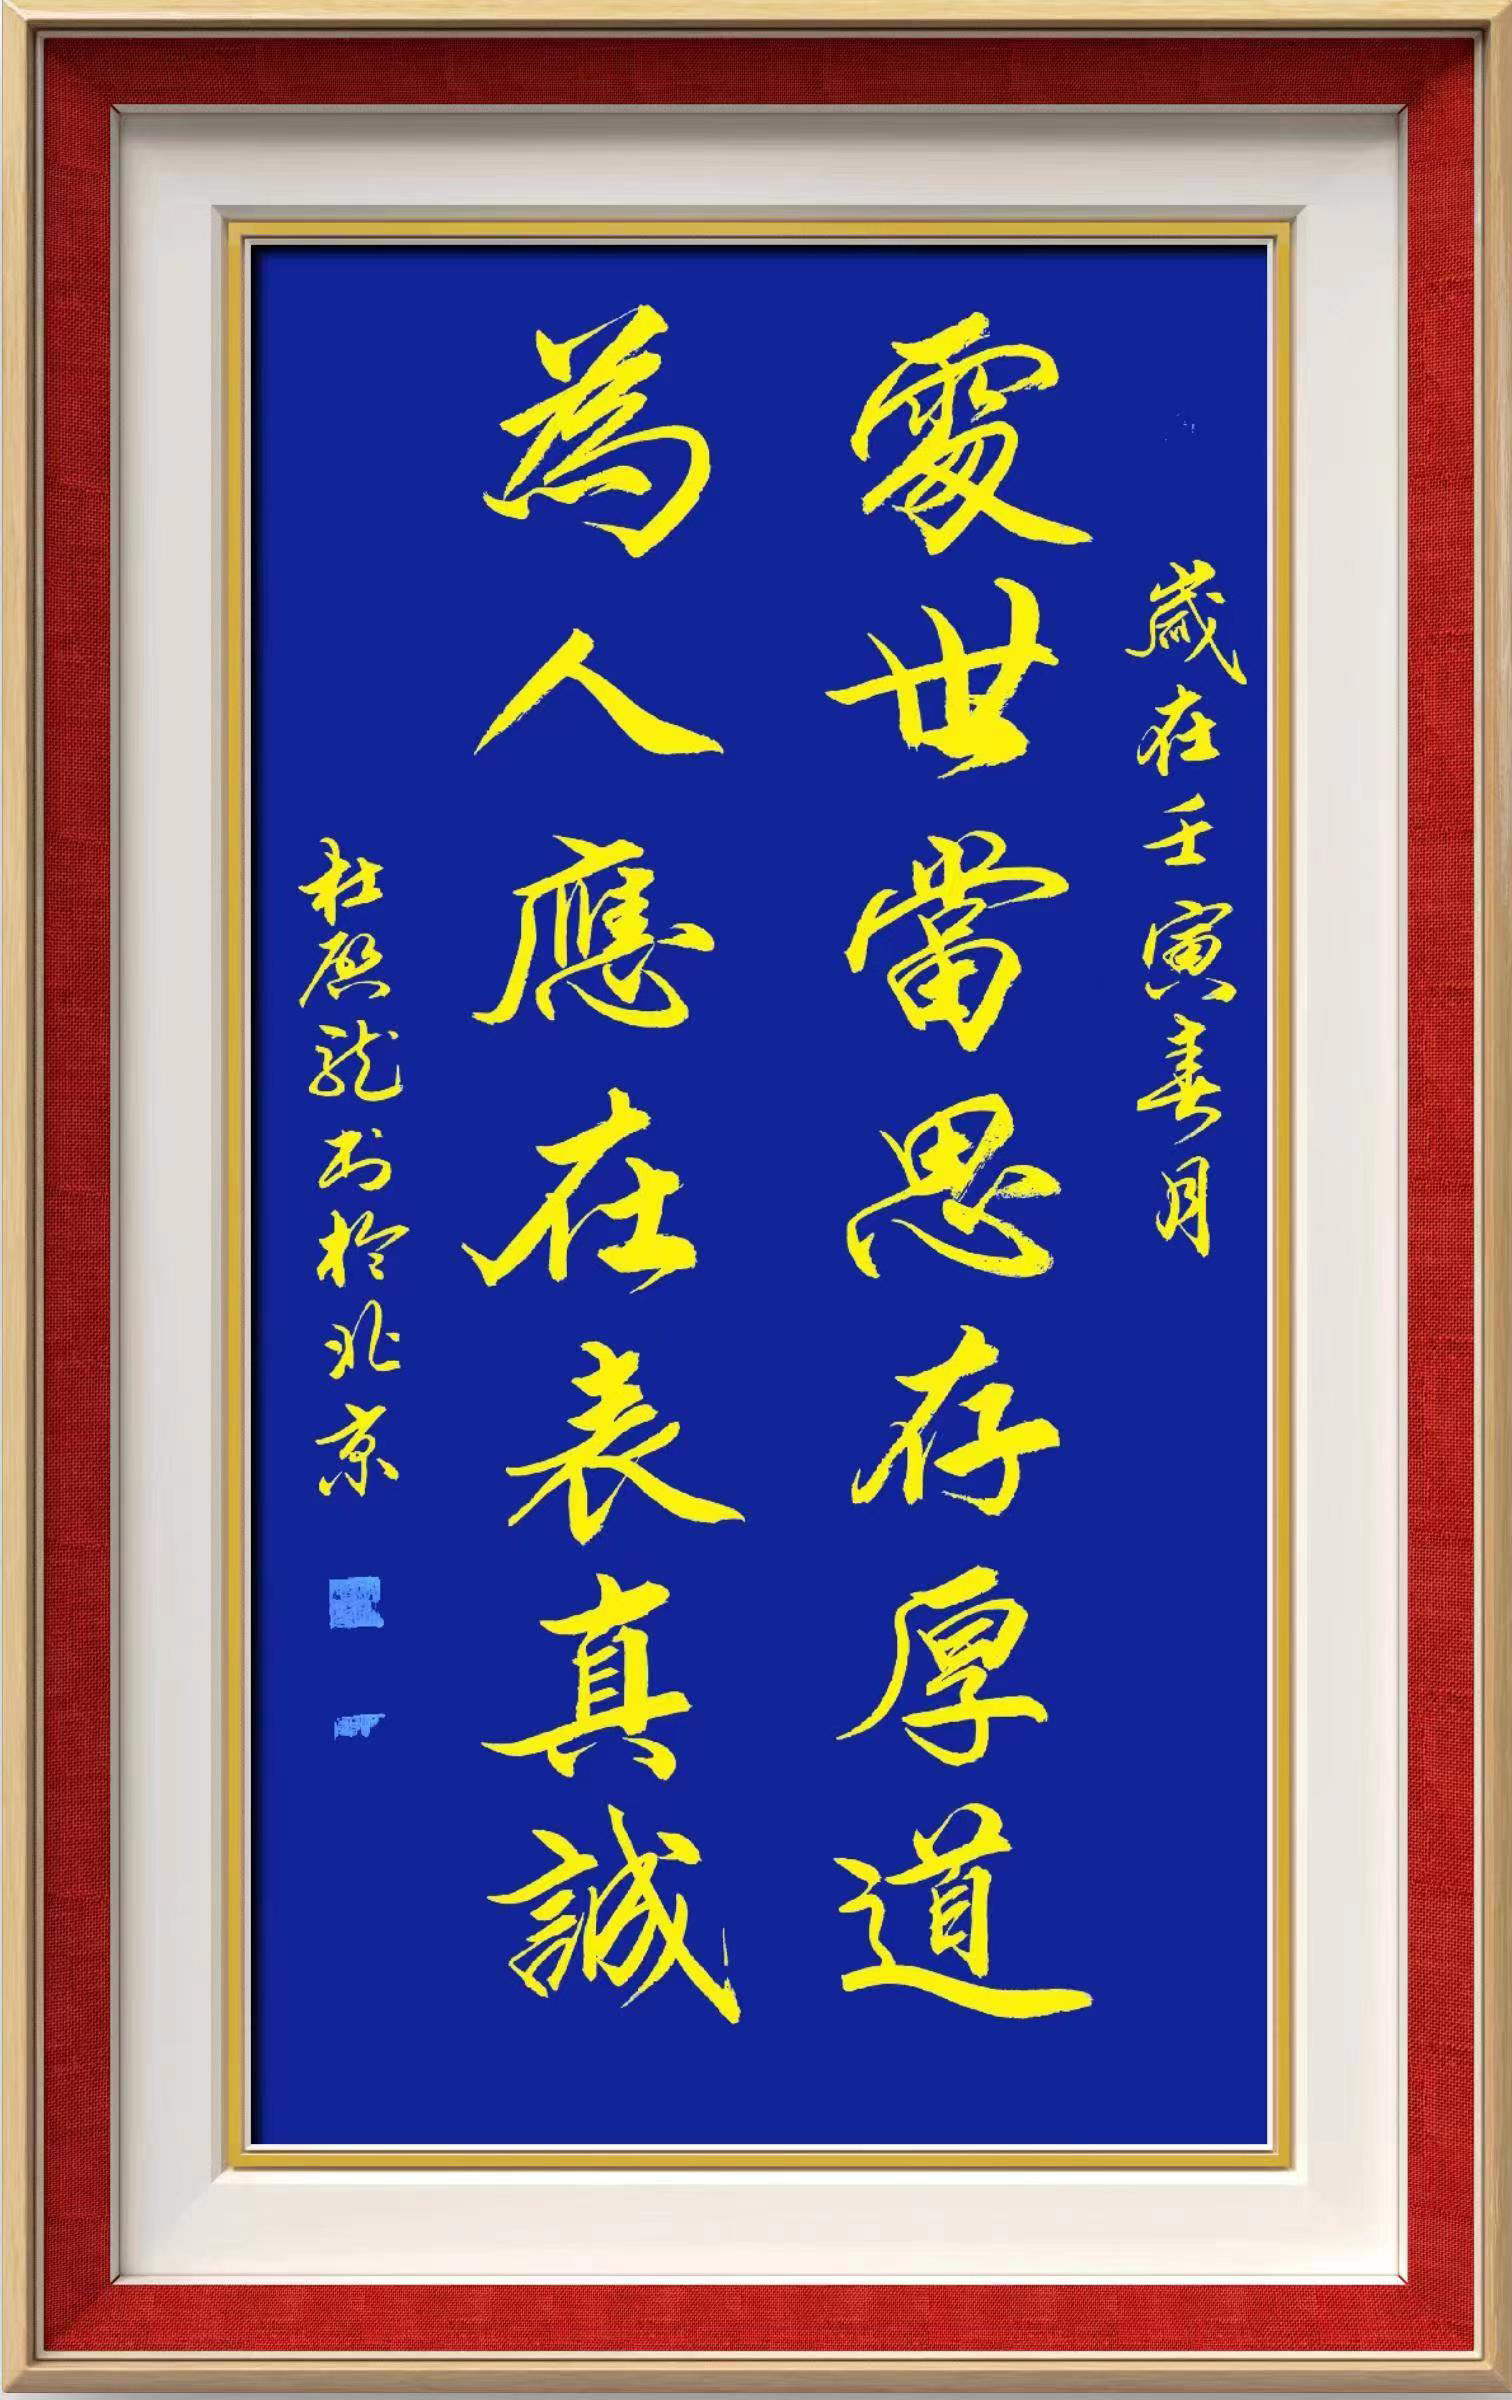 歲在壬寅春月
處世當思存厚道
為人應在表真誠
杜啟龍书於北京